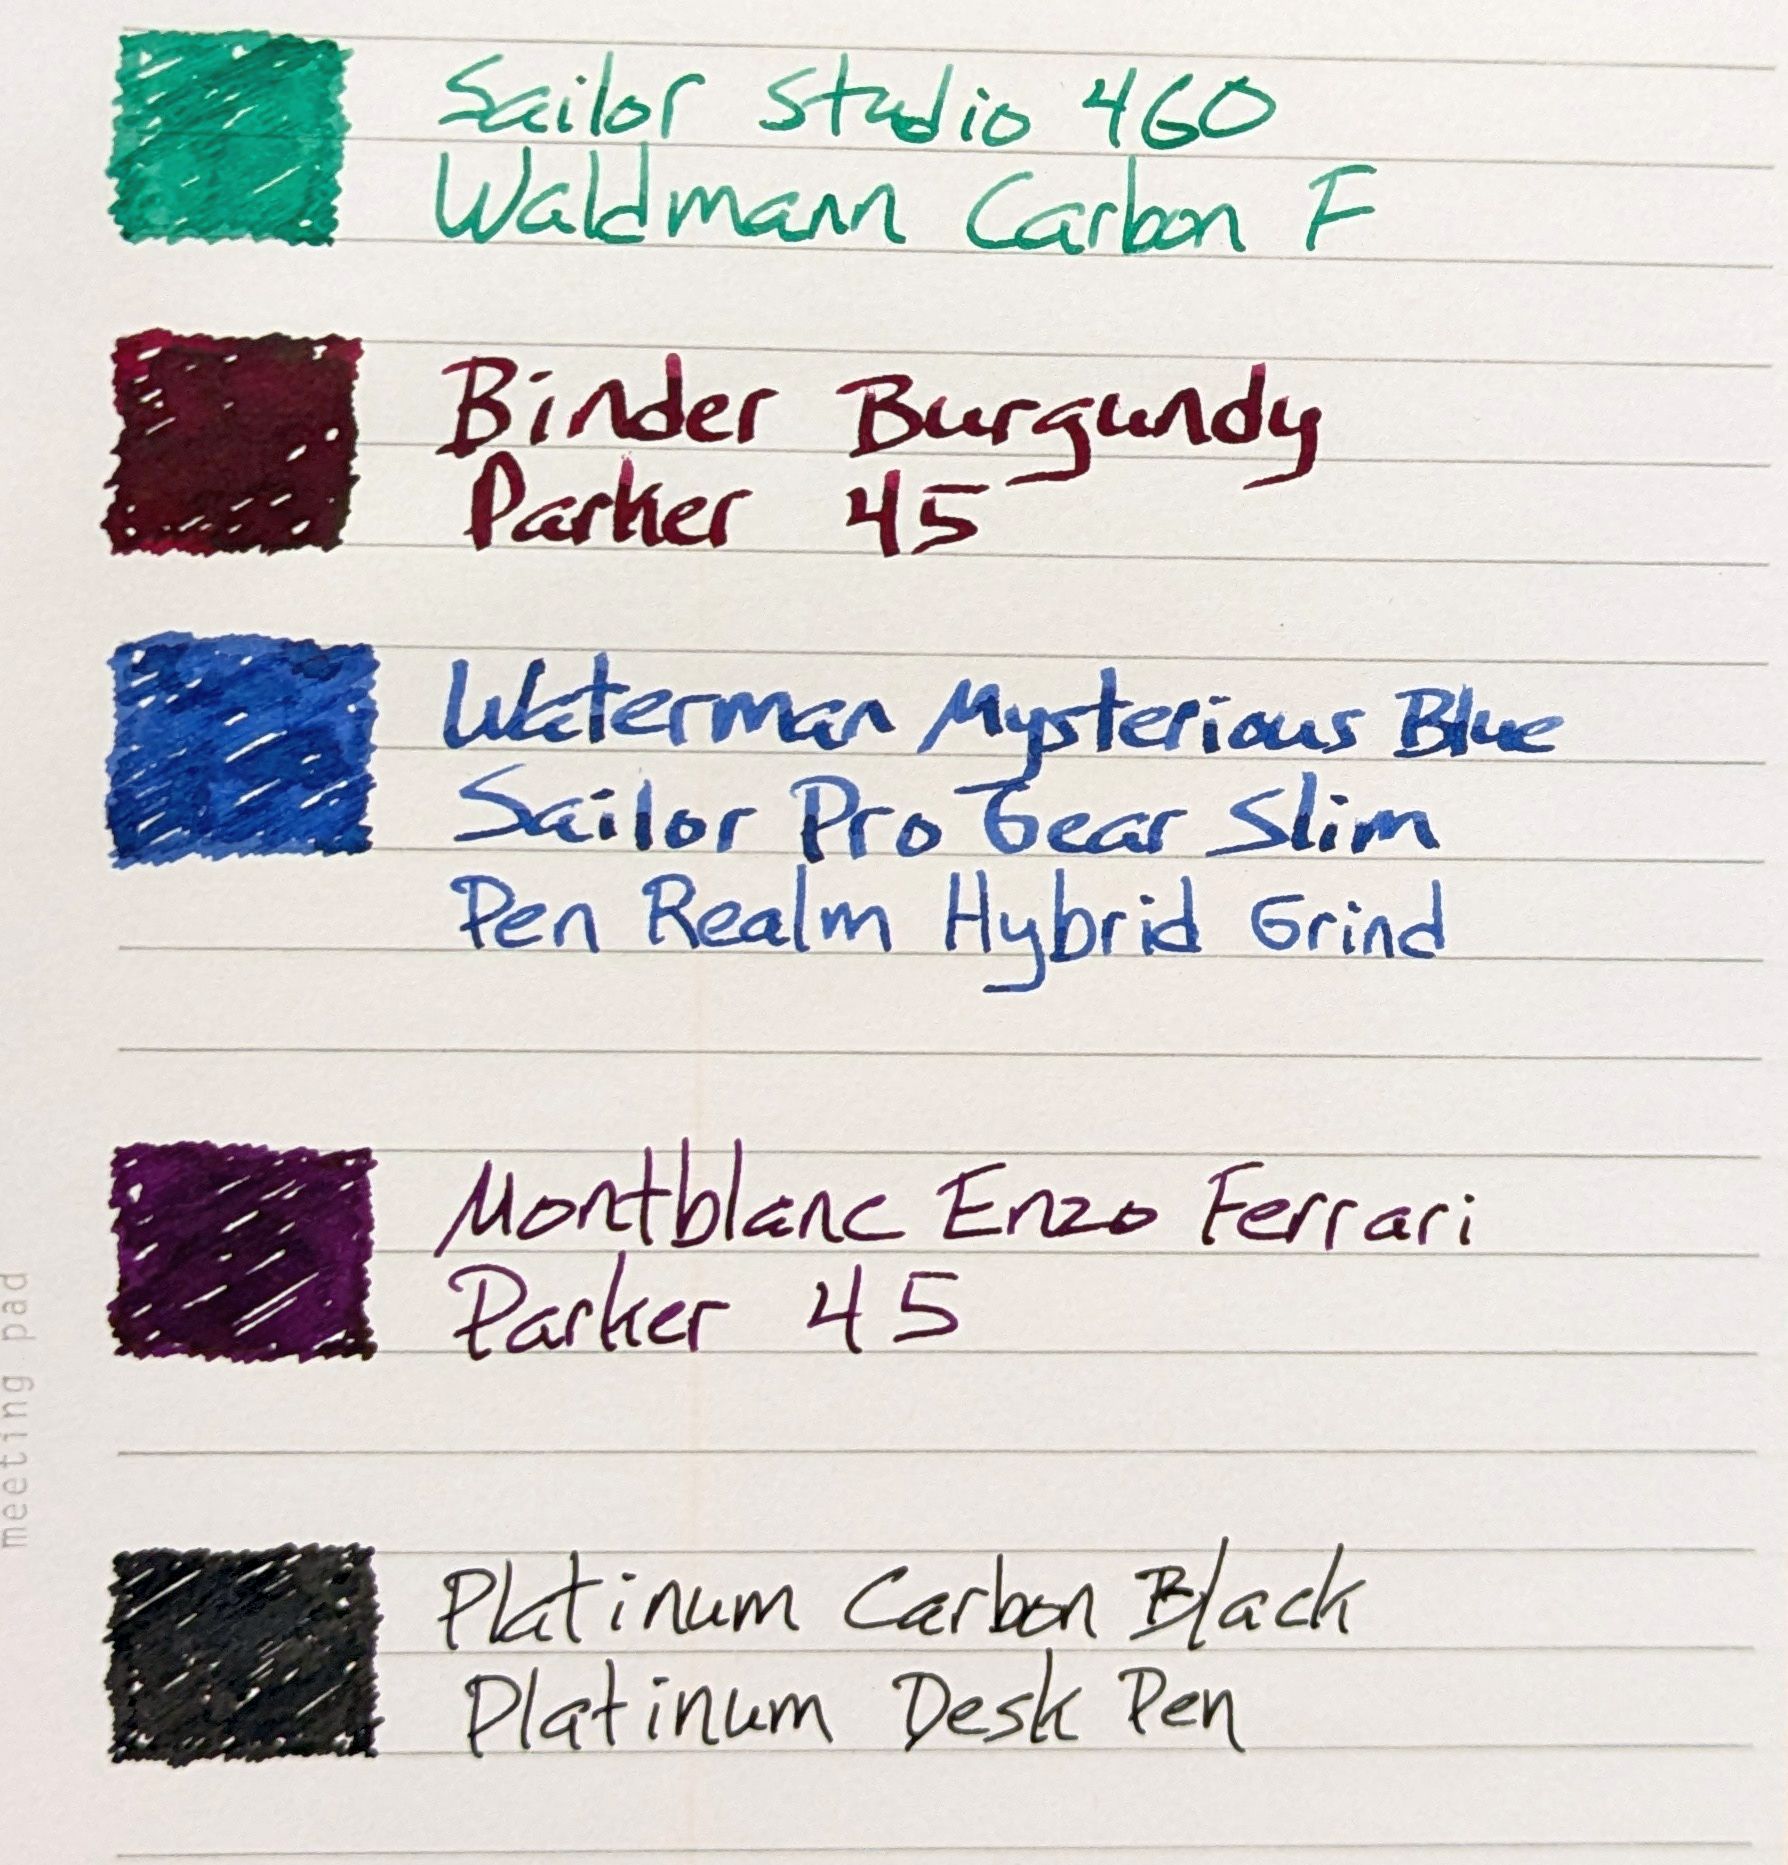 Sailor Studio 460
Waldmann Carbon F
Binder Burgundy
Parker 45
Waterman Mysterious Blue
Sailor Pro Gear Slim
Pen Realm Hybrid Grind
Montblanc Enzo Ferrari
Parker 45
Platinum Carbon Black
Platinum Desk Pen
meeting pad